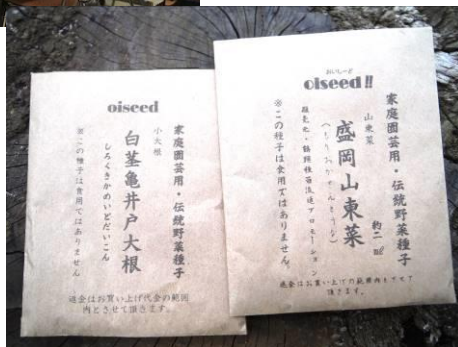 oiseed
家庭園芸用・伝統野菜種子
小大根
白茎亀井戸大根
しろくきかめいどだいこん
※この種子は食用ではありません
返金はお買い上げ代金の範囲
内とさせて頂きます。
おいしーど
oiseed!!
家庭園芸用・伝統野菜種子
山東菜
約二㎖
盛岡山東菜
(もりおかさんとうな)
※この種子は食用ではありません。
返金はお買い上げの範囲内とさせて
頂きます。